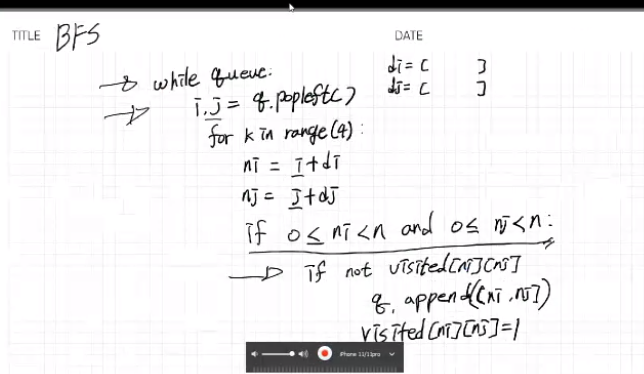 TITLE BFS
DATE
di = [ ]
dj = [ ]
while queue:
i, j = q.popleft( )
for k in range(4):
ni = i + di
nj = j + dj
if 0 ≤ ni < n and 0 ≤ nj < n:
if not visited[ni][nj]
q. append((ni, nj))
visited[ni][nj] = 1
iPhone 11/11pro